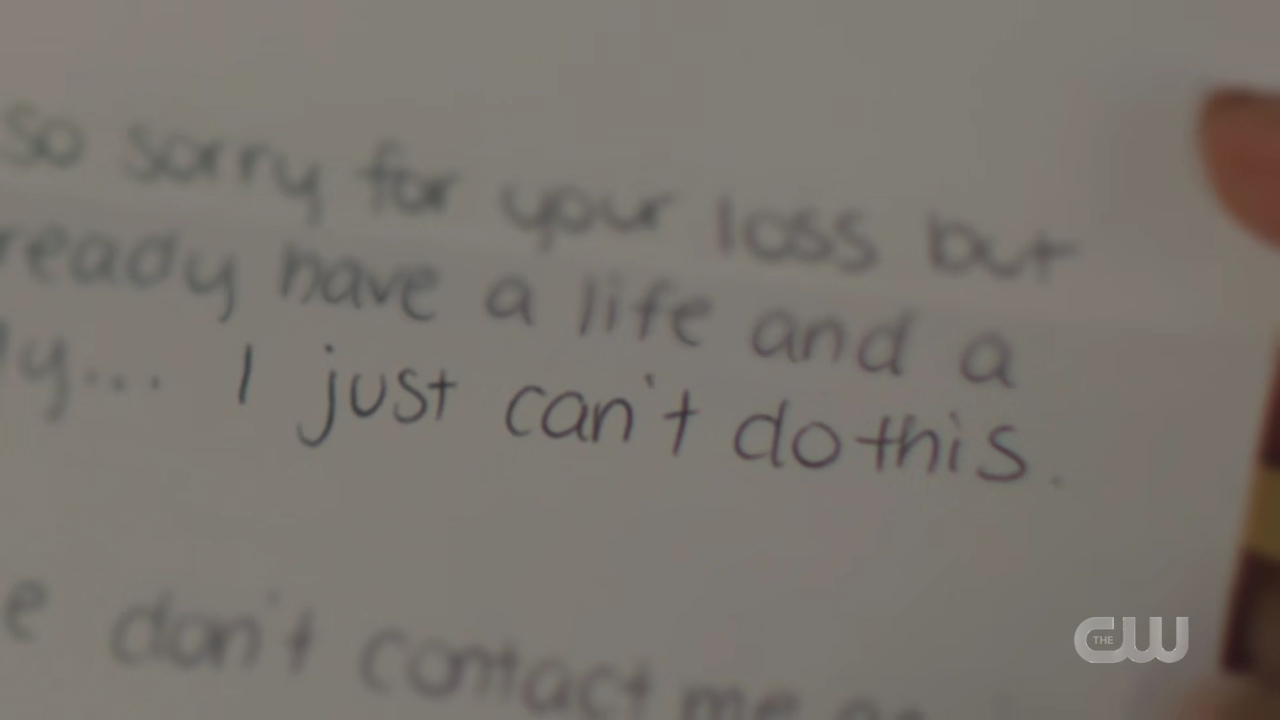 so sorry for your loss but
ready have a life and a
ly... I just can't do this.
e don't contact me
THE CW